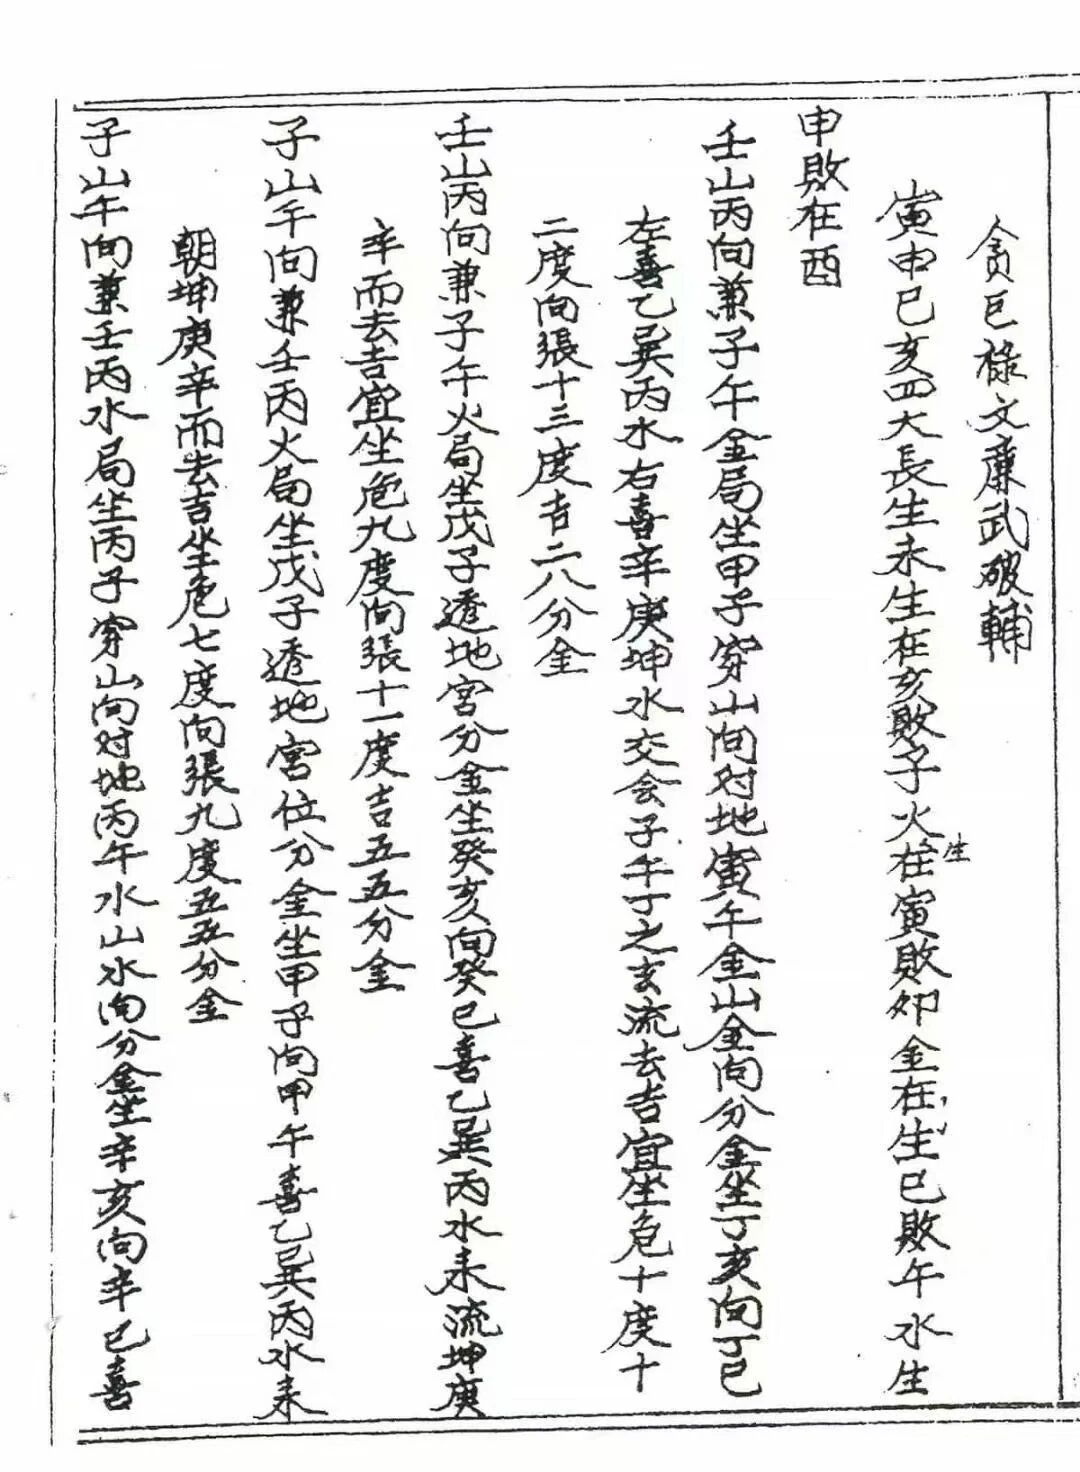 貪巨祿文廉武破輔
寅申巳亥四大長生木生在亥敗子火生在寅敗卯金在生巳敗午水生
申敗在酉
壬山丙向兼子午金局坐甲子穿山向对地寅午金山金向分金坐丁亥向丁巳
左喜乙巽丙水右喜辛庚坤水交会子午丁之玄流去吉宜坐危十度十
二度向張十三度吉二八分金
壬山丙向兼子午火局坐戊子透地宮分金坐癸亥向癸巳喜乙巽丙水来流坤庚
辛而去吉宜坐危九度向張十一度吉五五分金
子山午向兼壬丙火局坐戊子透地宮位分金坐甲子向甲午喜乙巽丙水来
朝坤庚辛而去吉坐危七度向張九度五五分金
子山午向兼壬丙水局坐丙子穿山向对地丙午水山水向分金坐辛亥向辛巳喜